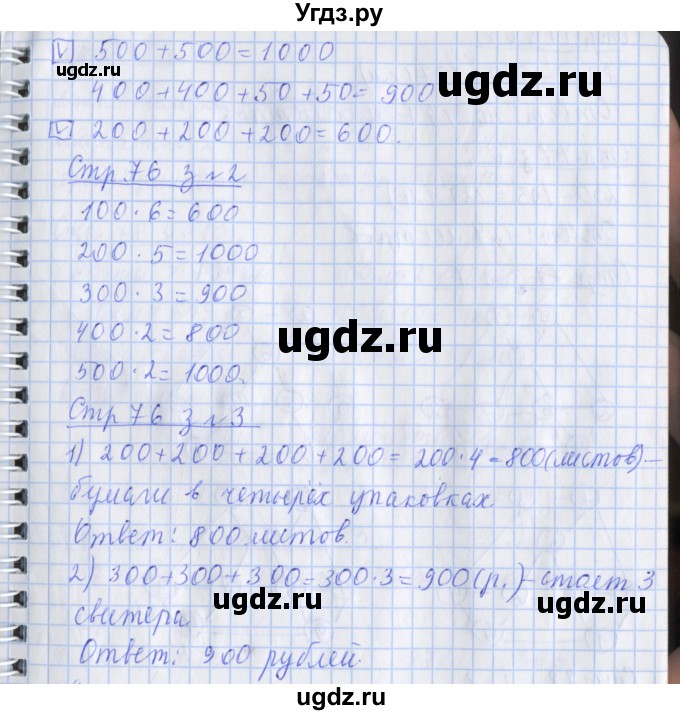 Угдз.ру
500 + 500 = 1000
ugdz.ru
ugdz.ru
400 + 400 + 50 + 50 = 900
200 + 200 + 200 = 600.
Стр 76 з №2
100 · 6 = 600
200 · 5 = 1000
300 · 3 = 900
400 · 2 = 800
ugdz.ru
500 · 2 = 1000.
Стр 76 з №3
1) 200 + 200 + 200 + 200 = 200 · 4 = 800 (листов) –
бумаги в четырёх упаковках.
Ответ: 800 листов.
ugdz.ru
2) 300 + 300 + 300 = 300 · 3 = 900 (р.) – стоят 3
ugdz.ru
ugdz.ru
свитера
Ответ: 900 рублей.
ugdz.ru